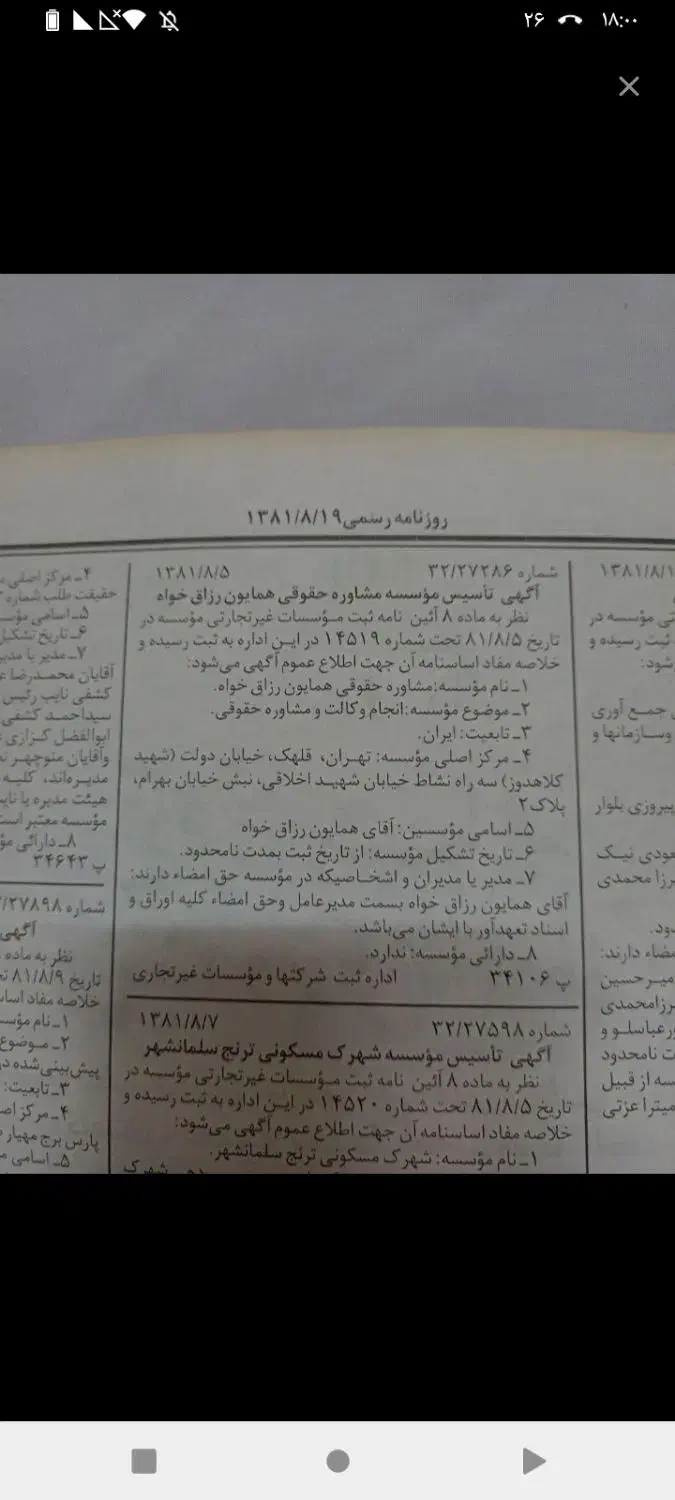 ۱۸:۰۰
۲۶
روزنامه رسمی ۱۳۸۱/۸/۱۹
۱۳۸۱/۸/۱
تی مؤسسه در
ثبت رسیده و
شود:
جمع آوری
وسـازمانها و
پیروزی بلوار
عودی نیـک
رزا محمدی
دود.
مضاء دارند:
میـرحسین
رزامحمدی
ورعباسلـو و
ت نامحدود
سه از قبیل
میترا عزتی
شماره ۳۲/۲۷۲۸۶ ۱۳۸۱/۸/۵
آگهی تأسیس مؤسسه مشاوره حقوقی همایون رزاق خواه
نظر به ماده ۸ آئین نامه ثبت مـؤسسات غیرتجارتی مؤسسه در
تاریخ ۸۱/۸/۵ تحت شماره ۱۴۵۱۹ در ایـن اداره به ثبت رسیده و
خلاصه مفاد اساسنامه آن جهت اطلاع عموم آگهی می‌شود:
۱ـ نام مؤسسه: مشاوره حقوقی همایون رزاق خواه.
۲ـ موضوع مؤسسه: انجام وکالت و مشاوره حقوقی.
۳ـ تابعیت: ایران.
۴ـ مرکز اصلی مؤسسه: تهـران، قلهک، خیابان دولت (شهید
کلاهدوز) سه راه نشاط خیابان شهیـد اخلاقی، نبش خیابان بهرام،
پلاک ۲
۵ـ اسامی مؤسسین: آقای همایون رزاق خواه
۶ـ تاریخ تشکیل مؤسسه: از تاریخ ثبت بمدت نامحدود.
۷ـ مدیر یا مدیران و اشخـاصیکه در مؤسسه حق امضاء دارند:
آقای همایون رزاق خواه بسمت مدیرعامل وحق امضاء کلیه اوراق و
اسناد تعهدآور با ایشان می‌باشد.
۸ـ دارائی مؤسسه: ندارد.
پ ۳۴۱۰۶ اداره ثبت شرکتها و مؤسسات غیرتجاری
شماره ۳۲/۲۷۵۹۸ ۱۳۸۱/۸/۷
آگهی تأسیس مؤسسه شهرک مسکونی ترنج سلمانشهر
نظر به ماده ۸ آئین نامه ثبت مـؤسسات غیرتجارتی مؤسسه در
تاریخ ۸۱/۸/۵ تحت شماره ۱۴۵۲۰ در ایـن اداره به ثبت رسیده و
خلاصه مفاد اساسنامه آن جهت اطلاع عموم آگهی می‌شود:
۱ـ نام مؤسسه: شهرک مسکونی ترنج سلمانشهر.
شهرک
۴ـ مرکز اصلی
حقیقت طلب شماره
۵ـ اسامی مؤس
۶ـ تاریخ تشکیل
۷ـ مدیر یا مدیر
آقایان محمـدرضا
کشفی نایب رئیس
سیداحمـد کشفی
ابوالفضل کـزازی
وآقایان منوچهر
مدیـره‌اند، کلیـه
هیئت مدیره یا نایب
مؤسسه معتبر است
۸ـ دارائی مؤ
پ ۳۴۶۴۳
شماره /۲۷۸۹۸
آگهی
نظر به ماده
تاریخ ۸۱/۸/۹
خلاصه مفاد اساس
۱ـ نام مؤسس
۲ـ موضوع
پیش‌بینی شده در
۳ـ تابعیت:
۴ـ مرکز اص
پارس برج مهیار
۵ـ اسامی م